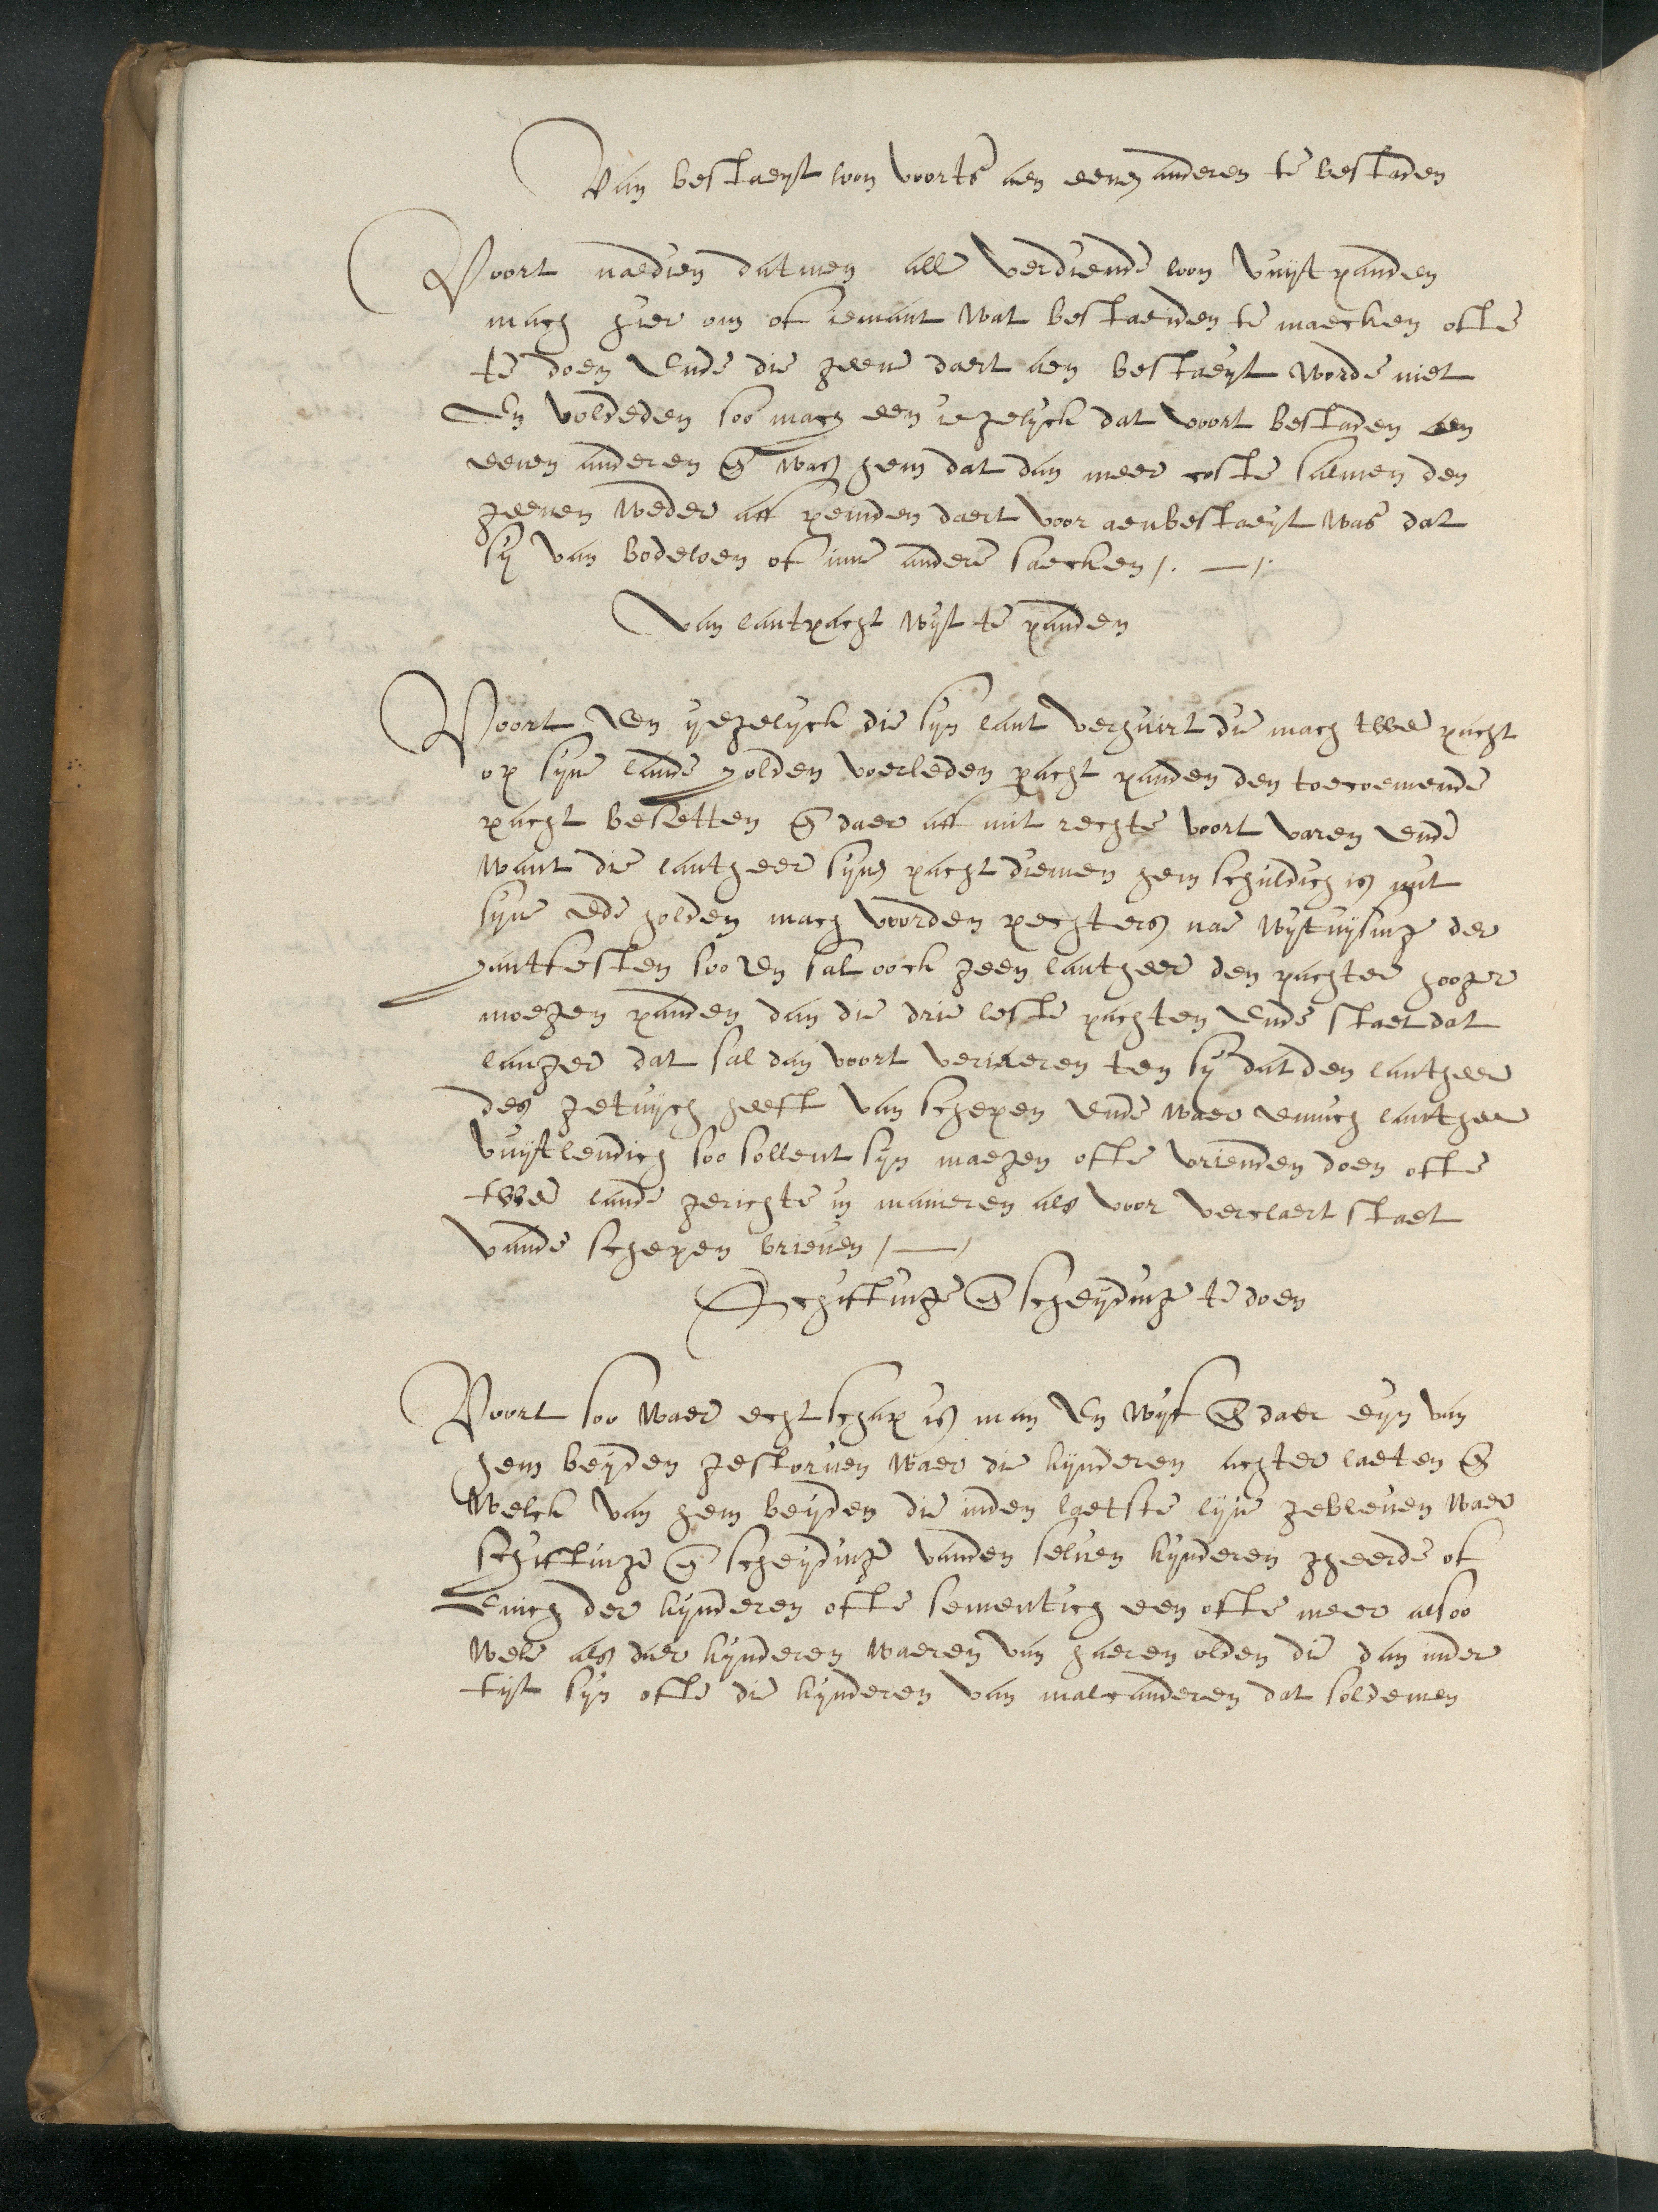 Van bestaeyt loon voorts aen eenen anderen te bestaden
Voort naedien datmen alle verdiende loon vuijt panden
mach hier om of iemant wat bestaeiden te maecken ofte
te doen Ende die geene daert aen bestaeyt worde niet
En voldeden soo mach een iegelyck dat voort bestaden aen
eenen anderen en wat hem dat dan meer coste salmen den
geenen weder aff peinden daert voor aenbestaeyt was dat
sy van bodeloen of inne andere saecken /. — /.
Van lantpacht wyt te panden
Voort Een ygelyck die syn lant verhuirt die mach twee pacht
op syne lande holden voerleden pacht panden den toecoemende
pacht besetten en daer aff mit rechte voort varen ende
want die lantheer syne pacht diemen hem schuldich is mit
syne Ede holden mach voorden pechters nae wytwysinge der
hantfesten soo en sal oock geen lantheer den pachter hooger
moegen panden dan die drie leste pachten ende staet dat
langer dat sal dan voort veriaeren ten sy dat den lantheer
des getuych heeft van schepen ende waer eenich lantheer
vuytlendich soo sollent syn maegen ofte vrienden doen ofte
twee lande gerichte in manieren als voor verclaert staet
vande schepen brieuen / — /
Schiftinge en scheydinge te doen
Voort soo waer echtschap is man En wyf en daer eyn van
hem beyden gestoruen waer die kynderen achter laeten en
welck van hem beyden die inden laetste lyue gebleuen waer
schiftinge en scheydinge vanden seluen kynderen gheerde of
Enich der kynderen ofte sementich een ofte meer alsoo
wele als daer kynderen waeren van haeren olden die dan inder
tyt syn ofte die kynderen van malcanderen dat soldemen